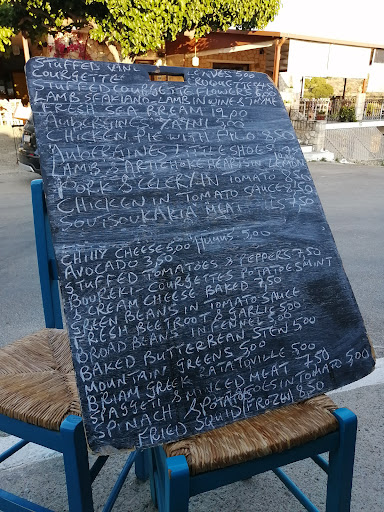 STUFFED LEAVES 500
COURGETTE
STUFFED COURGETTE FLOWERS
LAMB SFAKIANO - LAMB IN WINE & THYME
FRESH SEA BREAM 19,00
AUBERGINES
CHICKEN PIE WITH 8,50
AUBERGINES "LITTLE SHOES"
LAMB & ARTICHOKE HEARTS IN LEMON
PORK & CELERY IN TOMATO 8,50
CHICKEN IN TOMATO SAUCE 8,50
SOUTSOUKAKIA MEAT 7,50
CHILLY CHEESE 500 HUMUS 500
AVOCADO 3,50
STUFFED TOMATOES & PEPPERS 7,50
BOUREKI - COURGETTES POTATOES MINT
& CREAM CHEESE BAKED 7,50
GREEN BEANS IN TOMATO SAUCE
FRESH BEETROOT & GARLIC 500
BROAD BEANS IN FENNEL 500
BAKED BUTTERBEAN STEW 500
MOUNTAIN GREENS 500
BRIAM GREEK RATATOUILLE 500
SPAGGETI & MINCED MEAT 7,50
SPINACH & POTATOES IN TOMATO 500
FRIED SQUID (FROZEN) 8,50